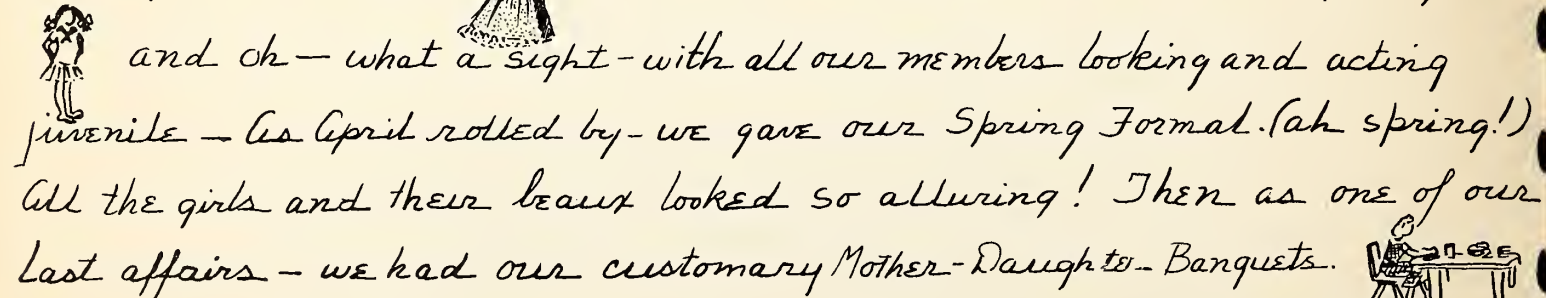 and oh — what a sight - with all our members looking and acting
juvenile — As April rolled by - we gave our Spring Formal. (ah spring!)
All the girls and their beaux looked so alluring! Then as one of our
last affairs - we had our customary Mother-Daughter Banquets.